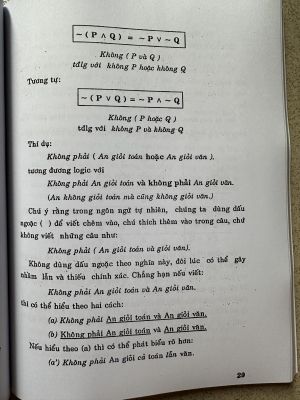 ~ ( P ∧ Q ) = ~ P ∨ ~ Q
Không ( P và Q )
tđlg với không P hoặc không Q
Tương tự:
~ ( P ∨ Q ) = ~ P ∧ ~ Q
Không ( P hoặc Q )
tđlg với không P và không Q
Thí dụ:
Không phải ( An giỏi toán hoặc An giỏi văn ).
tương đương logic với
Không phải An giỏi toán và không phải An giỏi văn.
(An không giỏi toán mà cũng không giỏi văn.)
Chú ý rằng trong ngôn ngữ tự nhiên, chúng ta dùng dấu
ngoặc ( ) để viết chêm vào, chú thích thêm vào trong câu, chứ
không viết những câu như:
Không phải ( An giỏi toán và giỏi văn).
Không dùng dấu ngoặc theo nghĩa này, đôi lúc có thể gây
nhầm lẫn và thiếu chính xác. Chẳng hạn nếu viết:
Không phải An giỏi toán và An giỏi văn.
thì có thể hiểu theo hai cách:
(a) Không phải An giỏi toán và An giỏi văn.
(b) Không phải An giỏi toán và An giỏi văn.
Nếu hiểu theo (a) thì có thể phát biểu rõ hơn:
(a') Không phải An giỏi cả toán lẫn văn.
29